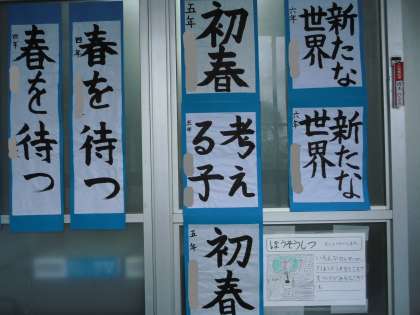 春を待つ
四年
春を待つ
四年
初春
五年
考える子
五年
初春
五年
新たな
世界
六年
新たな
世界
六年
ほうそうしつ